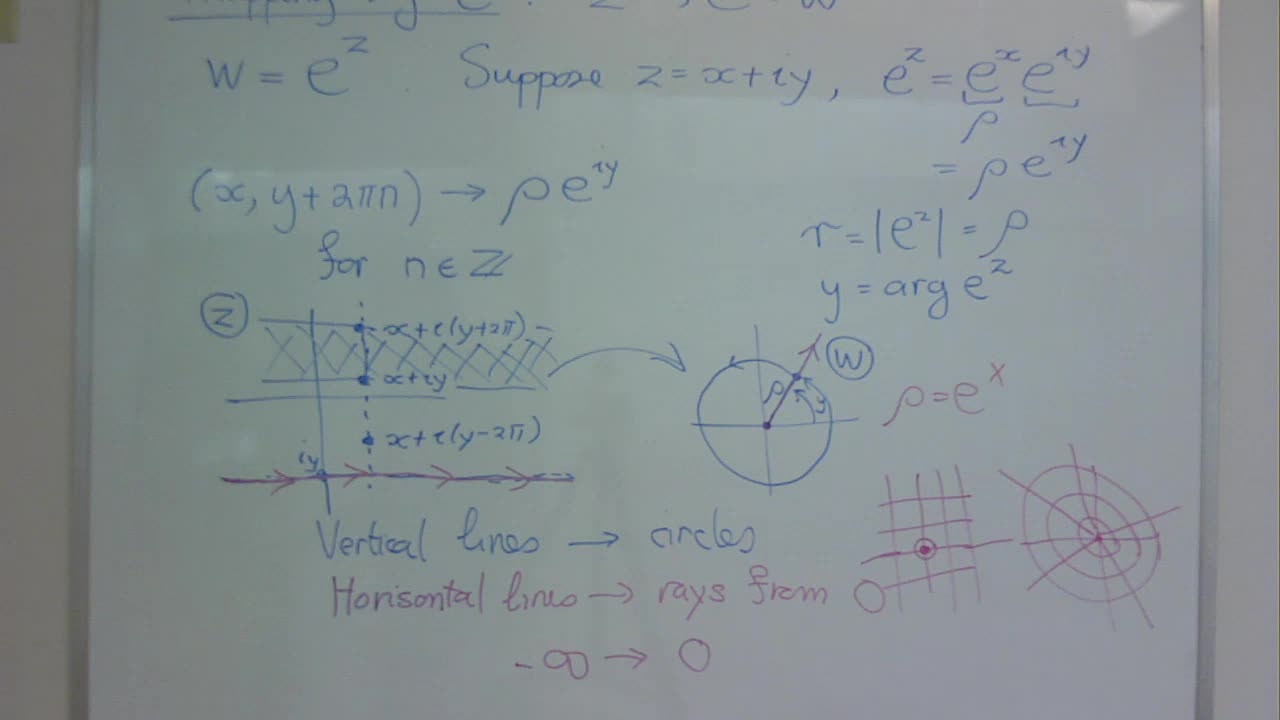 W = e^z Suppose z = x+iy, e^z = e^x e^iy
ρ
= ρ e^iy
(x, y+2πn) → ρ e^iy
for n ∈ ℤ
r = |e^z| = ρ
y = arg e^z
Z
x+i(y+2π)
x+iy
x+i(y-2π)
iy
W
ρ
y
ρ = e^x
Vertical lines → circles
Horisontal lines → rays from 0
-∞ → 0